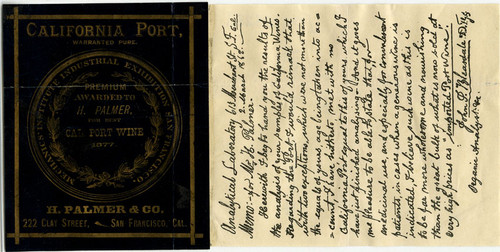 CALIFORNIA PORT,
WARRANTED PURE.
MECHANICS' INSTITUTE INDUSTRIAL EXHIBITION SAN FRANCISCO
PREMIUM
AWARDED TO
H. PALMER,
FOR BEST
CAL. PORT WINE
1877.
H. PALMER & CO.
222 CLAY STREET, SAN FRANCISCO, CAL.
Analytical Laboratory 613 Montgomery St., S.F. Cal.
Memo: for Mr. H. Palmer. March 1878.
Herewith I beg to hand you the results of
the analysis of your samples of California Wines.
Regarding the Port I would remark that
with two exceptions, which were not more than
the equals of yours, age being taken into ac-
count, I have hitherto met with no
California Port equal to this of yours which I
have just finished analyzing; & hence it gives
me pleasure to be able to state that for
medicinal use, and especially for convalescent
patients, in cases when a generous wine is
indicated, I believe such wine as this is
to be far more wholesome and nourishing
than the great bulk of what is here sold at
very high prices as "imported" Port Wine.
John H.
Organic Analyst &c.